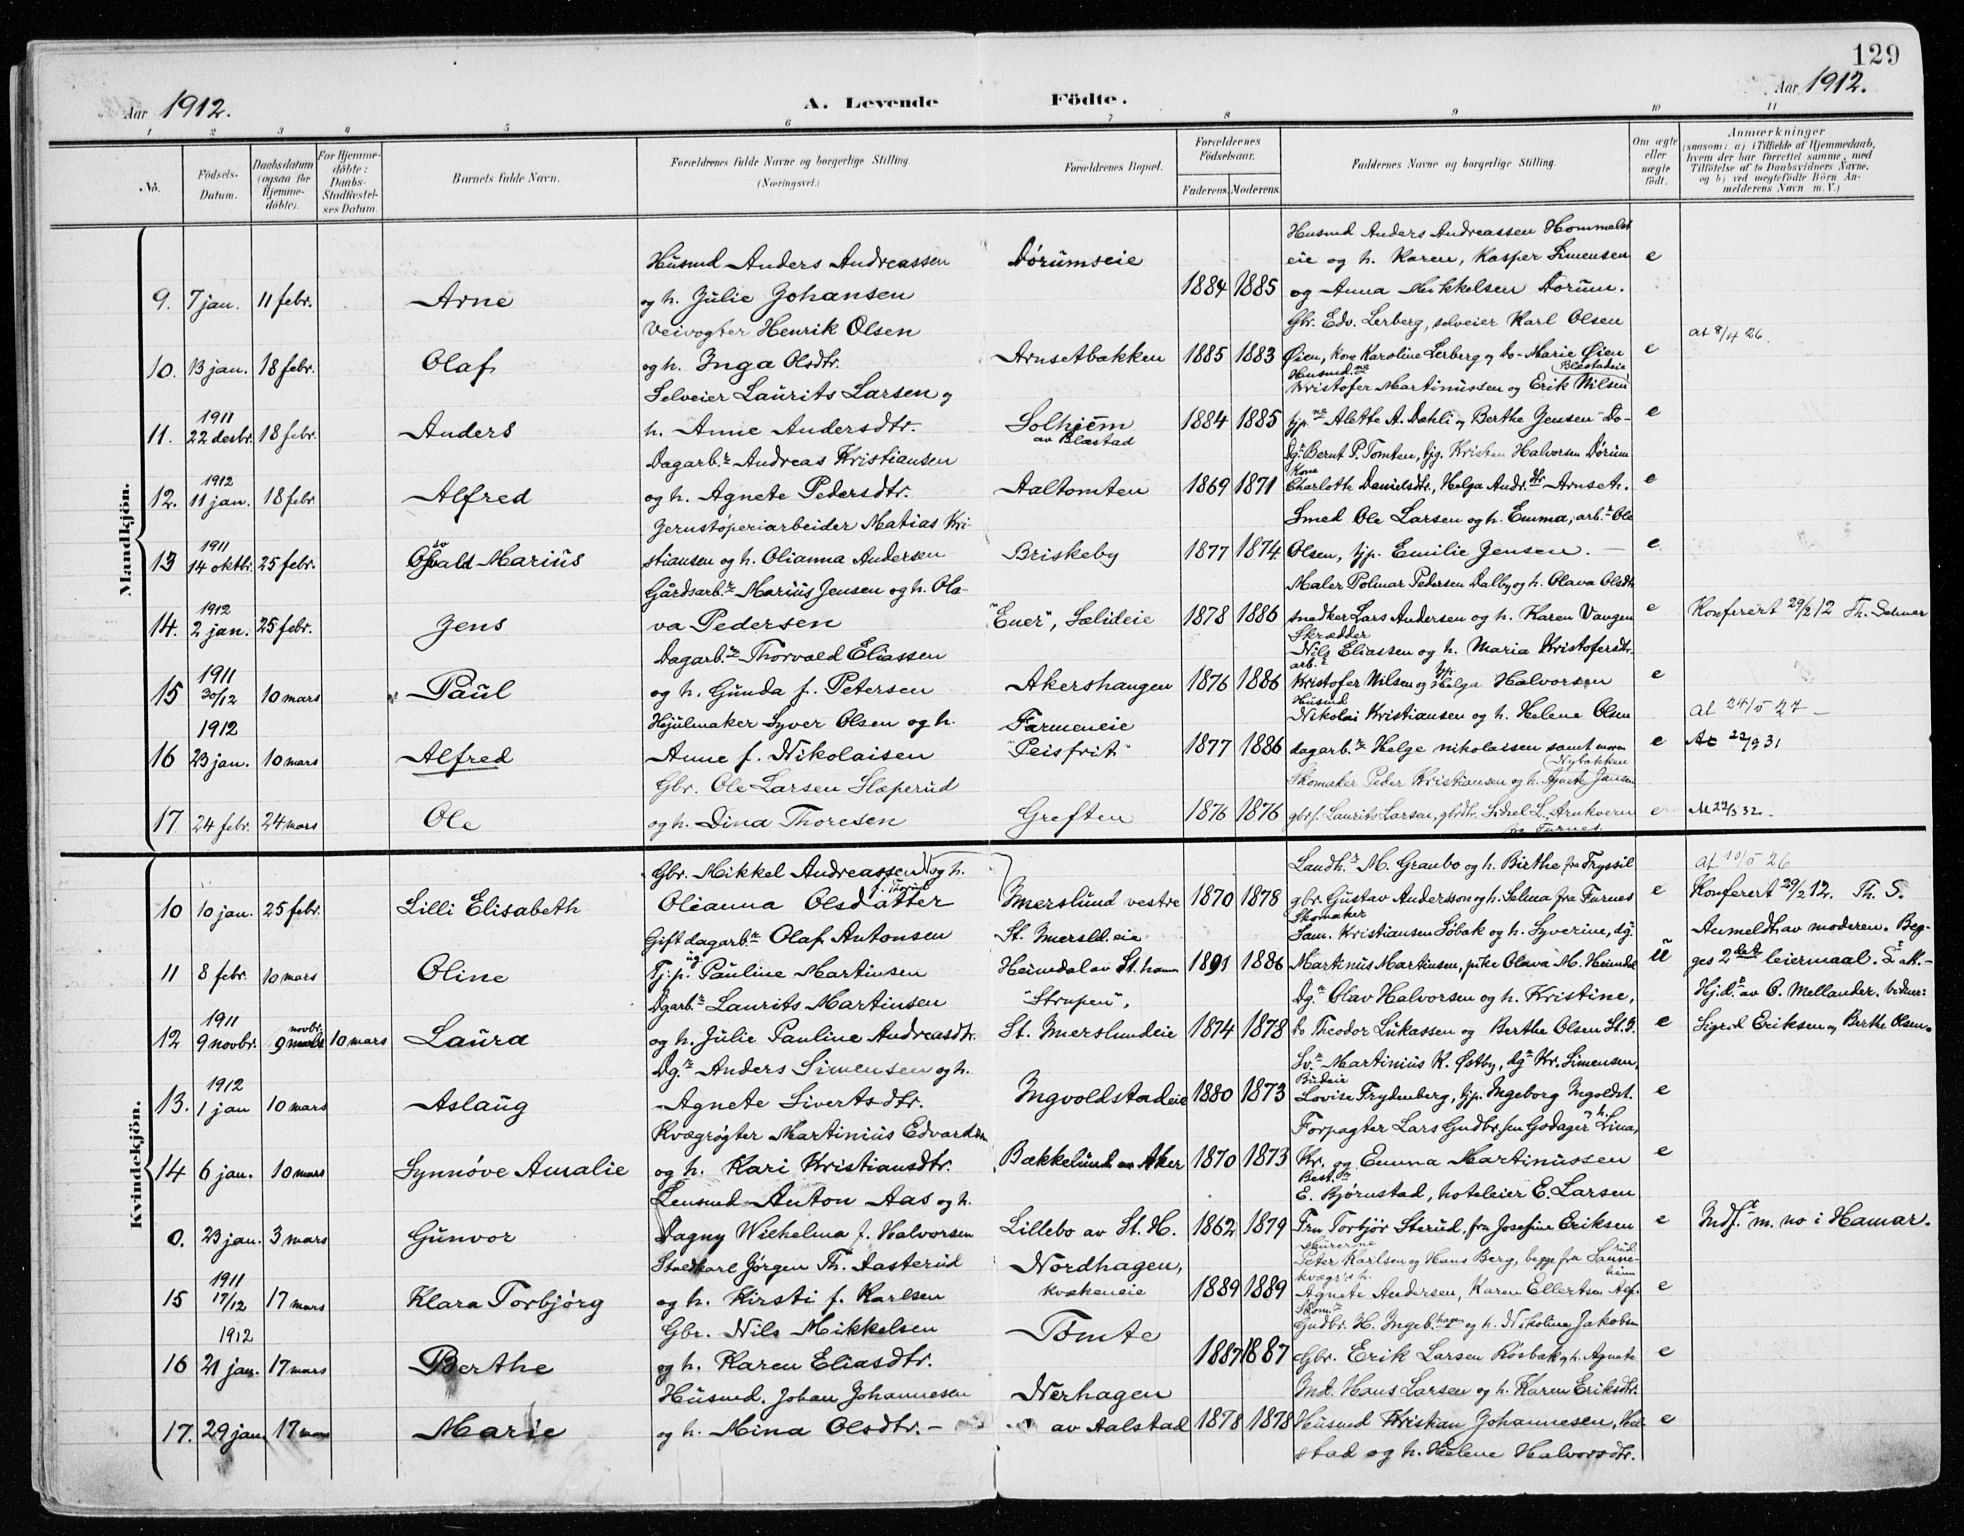 129
Aar 1912.
A. Levende Födte.
Aar 1912.
1 2 3 4 5 6 7 8 9 10 11
No.
Födsels-Datum.
Daabsdatum (ogsaa for Hjemme-döbte).
For Hjemme-döbte: Daabs-Stadfæstel-ses Datum.
Barnets fulde Navn.
Forældrenes fulde Navne og borgerlige Stilling. (Næringsvei.)
Forældrenes Bopæl.
Forældrenes Födselsaar.
Faderens. Moderens.
Faddernes Navne og borgerlige Stilling.
Om ægte eller uægte födt.
Anmærkninger
(saasom: a) i Tilfælde af Hjemmedaab, hvem der har forrettet samme, med Tilföielse af to Daabsvidners Navne, og b) ved uægtefödte Börn Anmelderens Navn m. V.)
Mandkjön.
Husmd Anders Andreassen Hommelst
Husmd Anders Andreassen Dörumseie eie og h. Karen, Kasper Simensen e
9. 7 jan. 11 febr. Arne og h. Julie Johansen 1884 1885 og Anna Mikkelsen Dörum.
Veivogter Henrik Olsen Gbr. Edv. Lerberg, selveier Karl Olsen at 8/4 26.
10. 13 jan. 18 febr. Olaf og h. Inga Olsdtr. Arnsetbakken 1885 1883 Øien, kone Karoline Lerberg og do- Marie Øien e
Selveier Laurits Larsen og Husmd. Kristofer Martinussen og Erik Nilsen Blæstadeie
11. 1911 22 desbr. 18 febr. Anders h. Anne Andersdtr. Solhjem av Blæstad 1884 1885 tjp. Alette A. Dæhli og Berthe Jensen do- e
Dagarb.r Andreas Kristiansen Dg. Bernt P. Tomten, tjg. Kristen Halvorsen Dörum
12. 1912 11 jan. 18 febr. Alfred og h. Agnete Pedersdtr. Aaltomten 1869 1871 Kone Charlotte Danielsdtr., Helga Andr.dtr Arnset. e
Jernstöperiarbeider Matias Kri- Smed Ole Larsen og h. Emma, arb.r Ole
13 1911 14 oktbr. 25 febr. Osvald Marius stiansen og h. Olianna Andersen Briskeby 1877 1874 Olsen, tjp. Emilie Jensen. e
Gårdsarb.r Marius Jensen og h. Ola- Maler Polmar Pedersen Dalby og h. Olava Olsdtr
14. 1912 2 jan. 25 febr. Jens va Pedersen "Ener", Sælideie 1878 1886 snedker Lars Andersen og h. Karen Vangen e Konferert 29/2 12 Th. Selmer
Dagarb.r Thorvald Eliassen Skrædder Nils Eliassen og h. Maria Kristofersdtr.
15 1911 30/12 10 mars Paul og h. Gunda f. Petersen Akershangen 1876 1886 arb.r Kristofer Nilsen og tjp. Helga Halvorsen e
Hjulmaker Syver Olsen og h. Farmeneie Husmd Nikolai Kristiansen og h. Helene Olsen at 24/5 27 -
16 1912 23 jan. 10 mars Alfred Anne f. Nikolaisen "Peisfrit" 1877 1886 dagarb.r Helge nikolaisen samt moren e At 22/9 31
Gbr. Ole Larsen Slæperud Skomaker Peder Kristiansen og h. Agnete Jansen Nybakken
17 24 febr. 24 mars Ole og h. Dina Thoresen Greften 1876 1876 gbrs. Laurits Larsen, gbrdtr. Sidsel L. Arnkvern fra Furnes. e At 22/3 32.
Kvindekjön.
Gbr. Mikkel Andreassen og h. Landh.r M. Granbo og h. Birthe fra Tryssil at 10/5 26
10 10 jan. 25 febr. Lilli Elisabeth Olianna Olsdatter Imerslund vestre 1870 1878 gbr. Gustav Andersson og h. Selma fra Furnes e Konferert 29/2 12. Th. S.
Gift dagarb.r Olaf Antonsen St. Imersld. eie Skomaker Sam. Kristiansen Söbak og h. Syverine, dg. Anmeldt av moderen. Beg-
11 8 febr. 10 mars Oline Tj.p. ug. Pauline Martinsen Heimdal av St. ham 1891 1886 Martinus Martinsen, pike Olava M. Heimdal u ges 2det leiermaal.
Dgarb.r Laurits Martinsen "Strupen", Dg.r Olav Halvorsen og h. Kristine, Hj.d. av O. Mellander. vidner:
12 1911 9 novbr. 9 novbr. 10 mars Laura og h. Julie Pauline Andreasdtr. St. Imerslundeie 1874 1878 do Theodor Lukassen og Berthe Olsen St. I. e Sigrid Eriksen og Berthe Olsen.
Dg.r Anders Simensen og h. Sv.r Martinius K. Østby, dg.r Kr. Simensen,
13. 1912 1 jan 10 mars Aslaug Agnete Sivertsdtr. Ingvoldstadeie 1880 1873 Budeie Lovise Frydenberg, tjp. Ingeborg Ingoldst. e
Kvægrögter Martinius Edvardsen Forpagter Lars Gudbr.sen Godager h. Lina,
14 6 jan. 10 mars Synnöve Amalie og h. Kari Kristiansdtr. Bækkelund av Aker 1870 1873 Kr. og Emma Martinussen e
Lensmd Anton Aas og h. Best.r E. Bjørnstad, hoteleier E. Larsen
0. 23 jan. 3 mars Gunvor Dagny Wilhelma f. Halvorsen Lillebo av St. H. 1862 1879 Fru Torbjör Sterud, fru Josefine Eriksen e Indf. m. no i Hamar.
Staldkarl Jörgen Th. Aasterud Nordhagen, Murerne Peter Karlsen og Hans Berg, begge fra Sanne-
15 1911 17/12 17 mars Klara Torbjörg og h. Kirsti f. Karlsen Kvækeneie 1889 1889 Agnete Andersen, Karen Ellertsen e
Gbr. Nils Mikkelsen Tomte Skom.r Gudbr. H. Ingeb.hagen og h. Nikoline Jakobsen
16 1912 21 jan. 17 mars Berthe og h. Karen Eliasdtr. 1887 1887 Gbr. Erik Larsen Rösbak og h. Agnete e
Husmd. Johan Johannesen Nerhagen Ind. Hans Larsen og h. Karen Eriksdtr.
17. 29 jan. 17 mars Marie og h. Mina Olsdtr. - av Aalstad 1878 1878 Husmd Kristian Johannesen, e
stad og h. Helene Halvorsdtr.